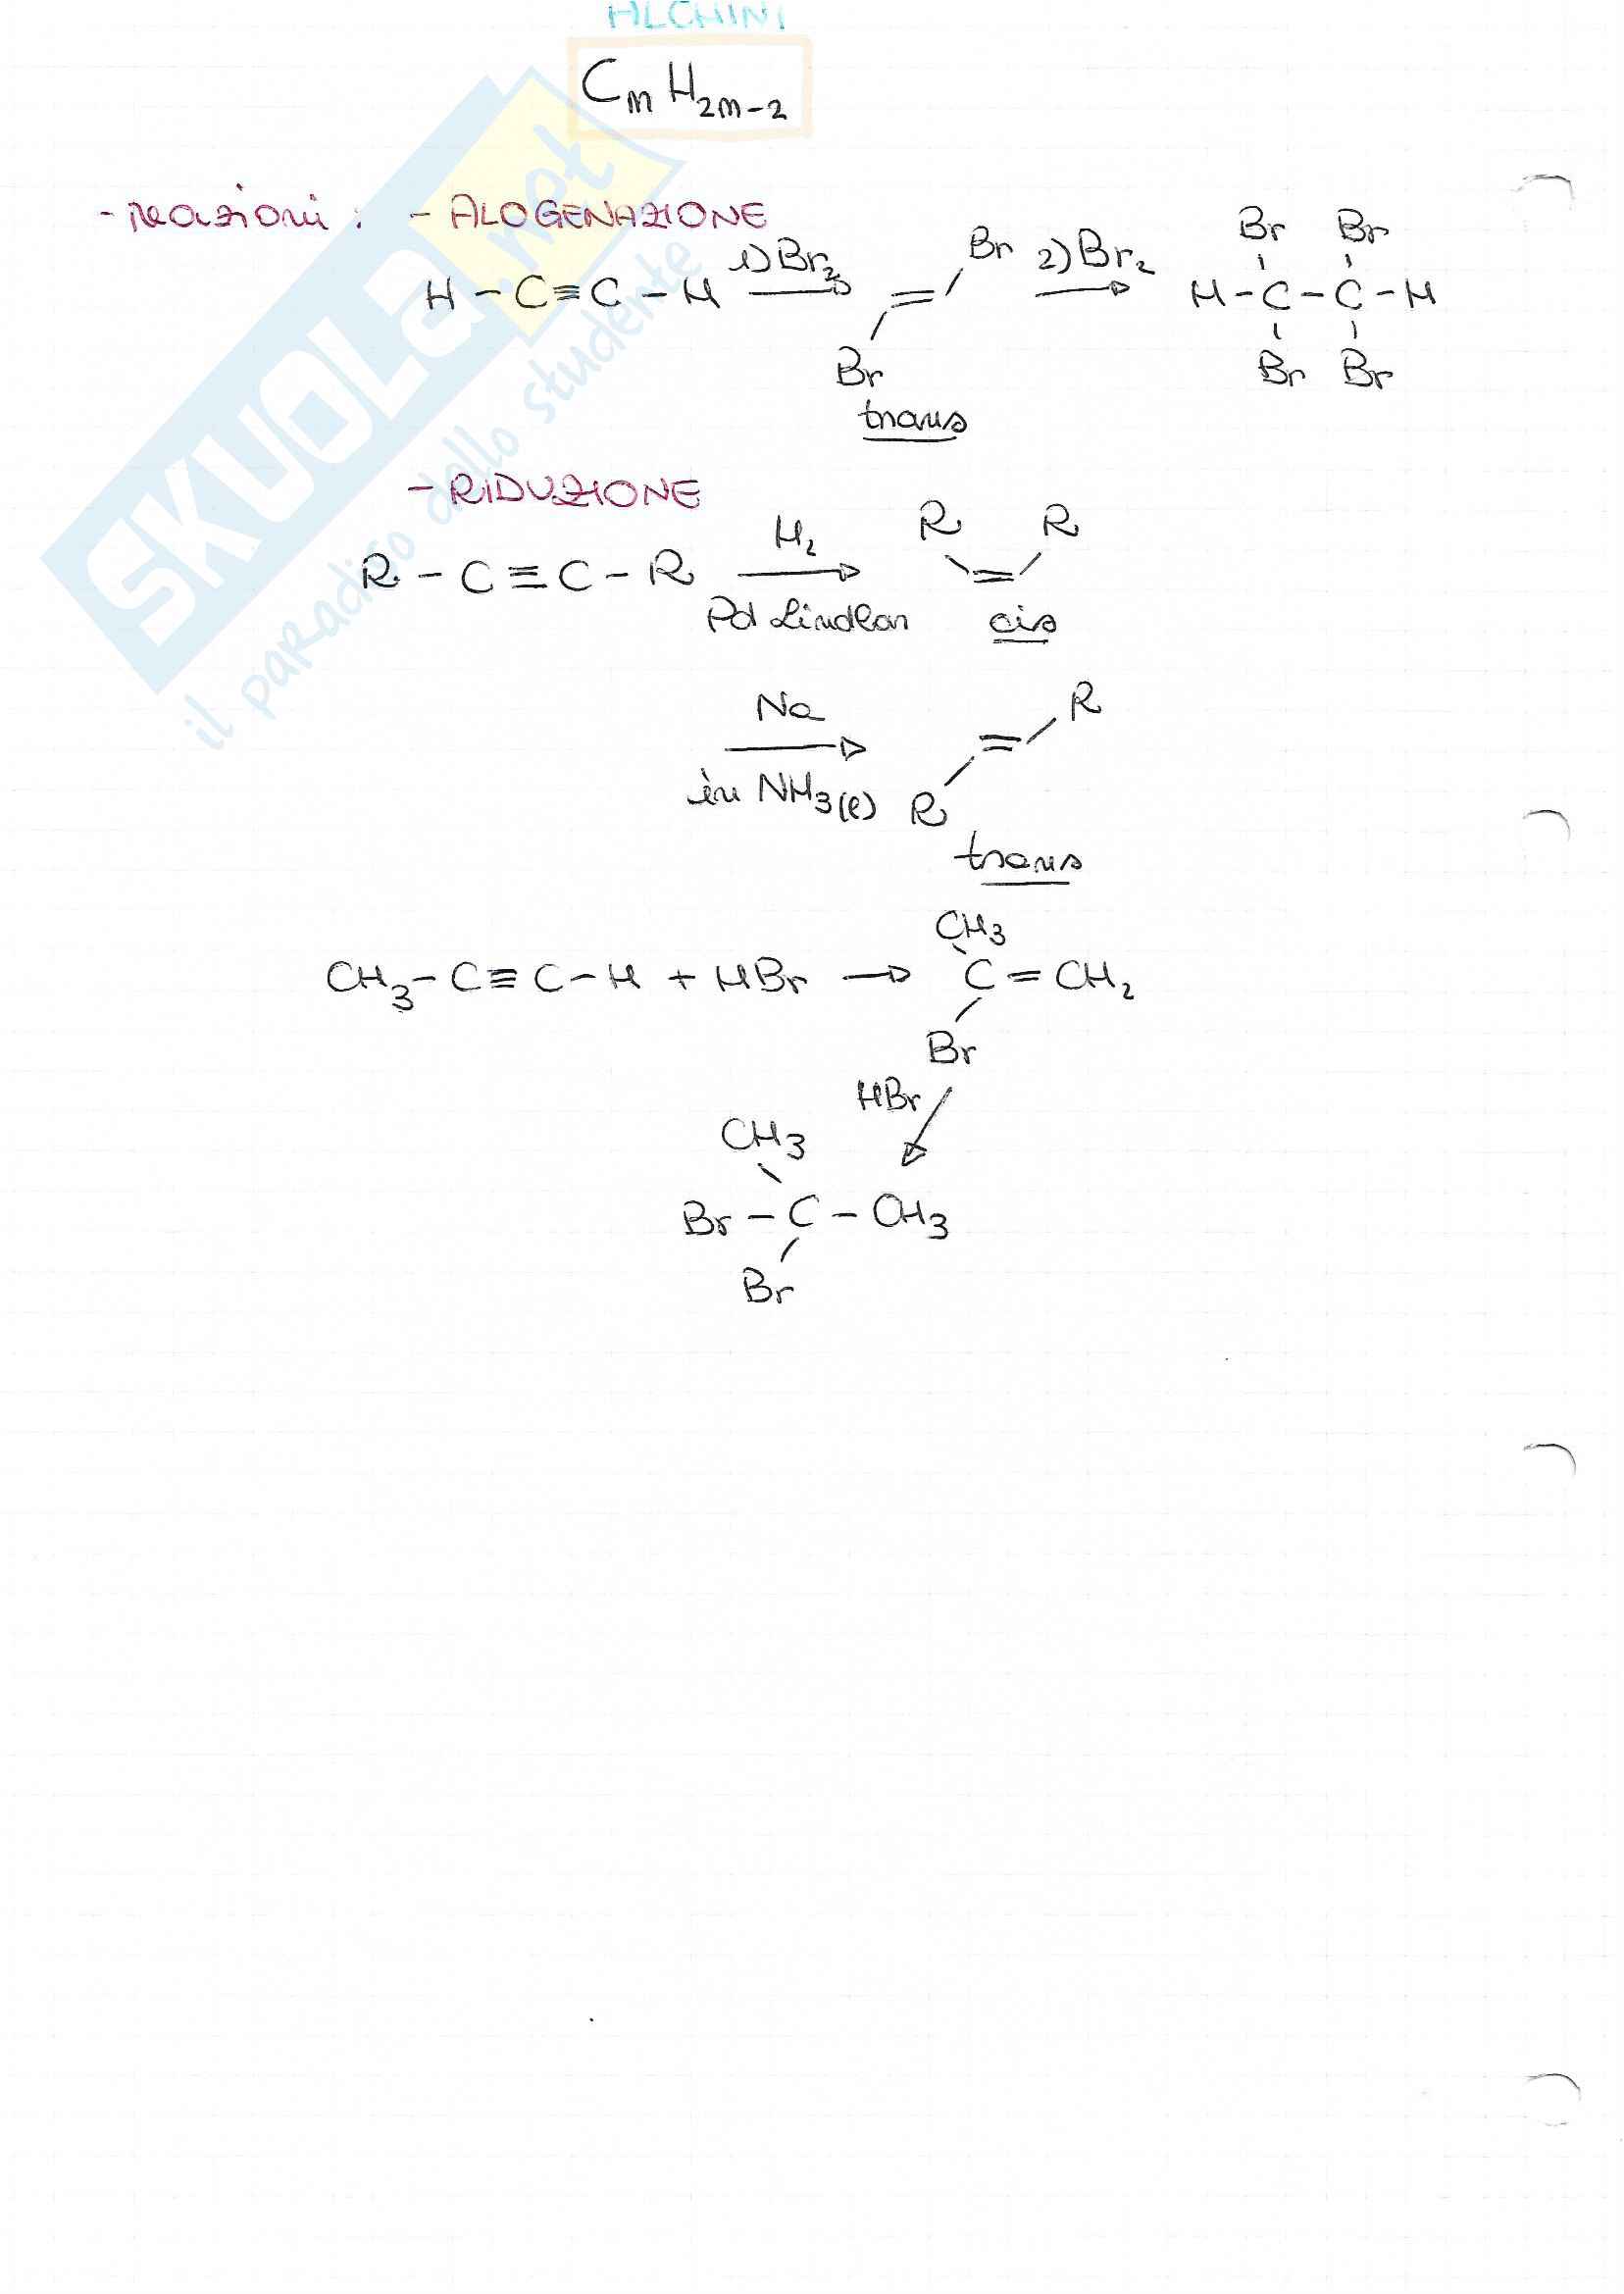 ALCHINI
CₙH₂ₙ₋₂
- reazioni : - ALOGENAZIONE
H - C≡C - H 1) Br₂ Br Br 2) Br₂ H - C - C - H Br Br Br Br
trans
- RIDUZIONE
R - C≡C - R H₂ Pd Lindlar R R
cis
Na in NH₃(l) R R
trans
CH₃ - C≡C - H + HBr → CH₃ C = CH₂
Br
HBr
CH₃
Br - C - CH₃
Br
SKUOLa.net
il paradiso dello studente